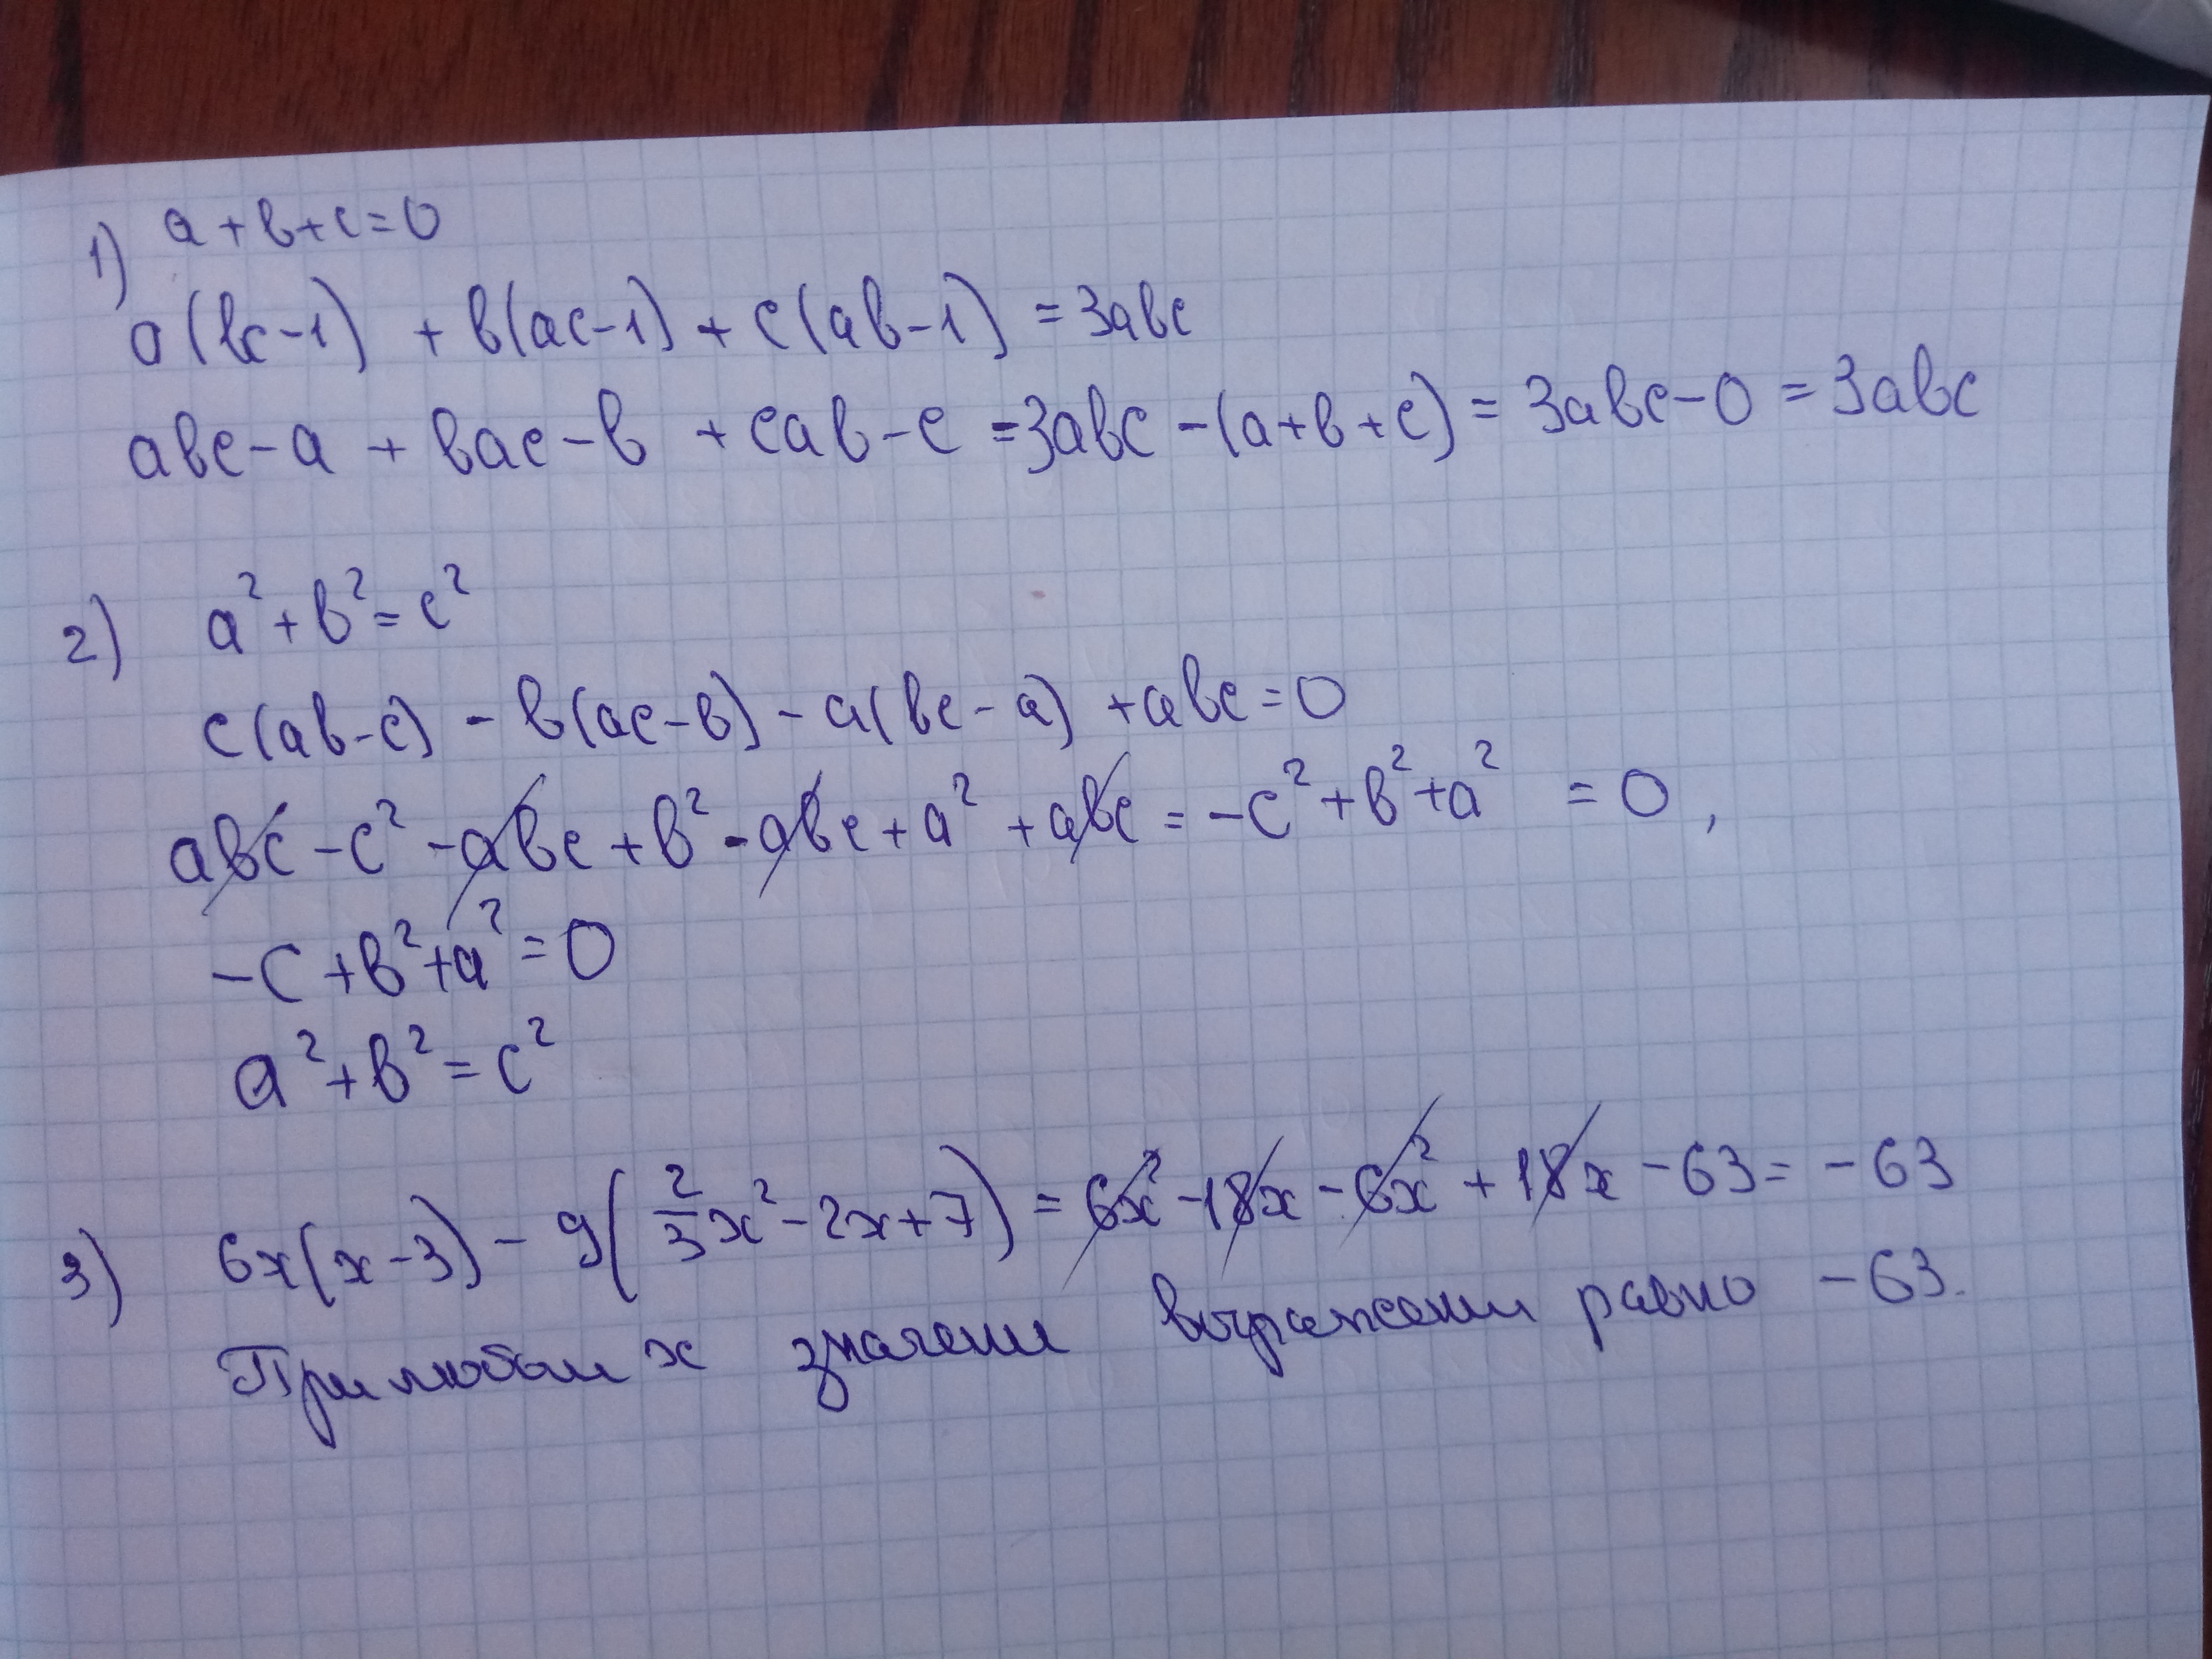 1) a + b + c = 0
a(bc-1) + b(ac-1) + c(ab-1) = 3abc
abc - a + bac - b + cab - c = 3abc - (a+b+c) = 3abc - 0 = 3abc
2) a² + b² = c²
c(ab-c) - b(ac-b) - a(bc-a) + abc = 0
abc - c² - abc + b² - abc + a² + abc = -c² + b² + a² = 0,
-c + b² + a² = 0
a² + b² = c²
3) 6x(x-3) - 9(2/3x² - 2x + 7) = 6x² - 18x - 6x² + 18x - 63 = -63
При любом x значение выражения равно -63.